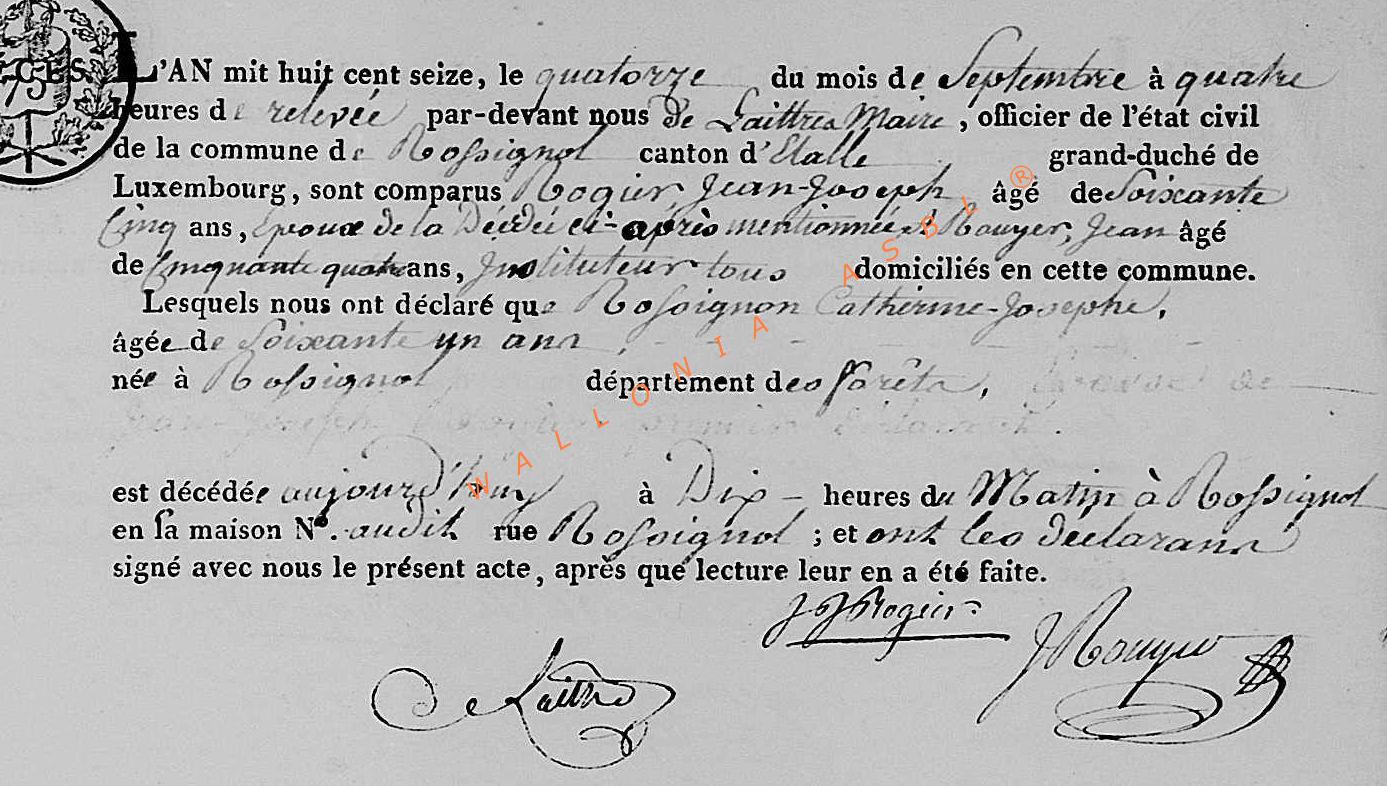 L'AN mil huit cent seize, le quatorze du mois de Septembre à quatre
heures de relevée par-devant nous De Laittres Maire, officier de l'état civil
de la commune de Rossignol canton d'Etalle grand-duché de
Luxembourg, sont comparus Rogier, Jean-Joseph âgé de Soixante
Cinq ans, Epoux de la Décédée ci-après mentionnée & Rouyer, Jean âgé
de Cinquante quatre ans, Instituteur tous domiciliés en cette commune.
Lesquels nous ont déclaré que Rossignon Catherine-Josephe,
âgée de Soixante un ans,
née à Rossignol département des forêts, Epouse de
Jean-Joseph Rogier premier déclarant.
est décédée aujourd'huy à Dix - heures du Matin à Rossignol
en sa maison N°. audit rue Rossignol ; et ont les déclarans
signé avec nous le présent acte, après que lecture leur en a été faite.
JJ Rogier
J Rouyer
De Laittre
WALLONIA ASBL ®